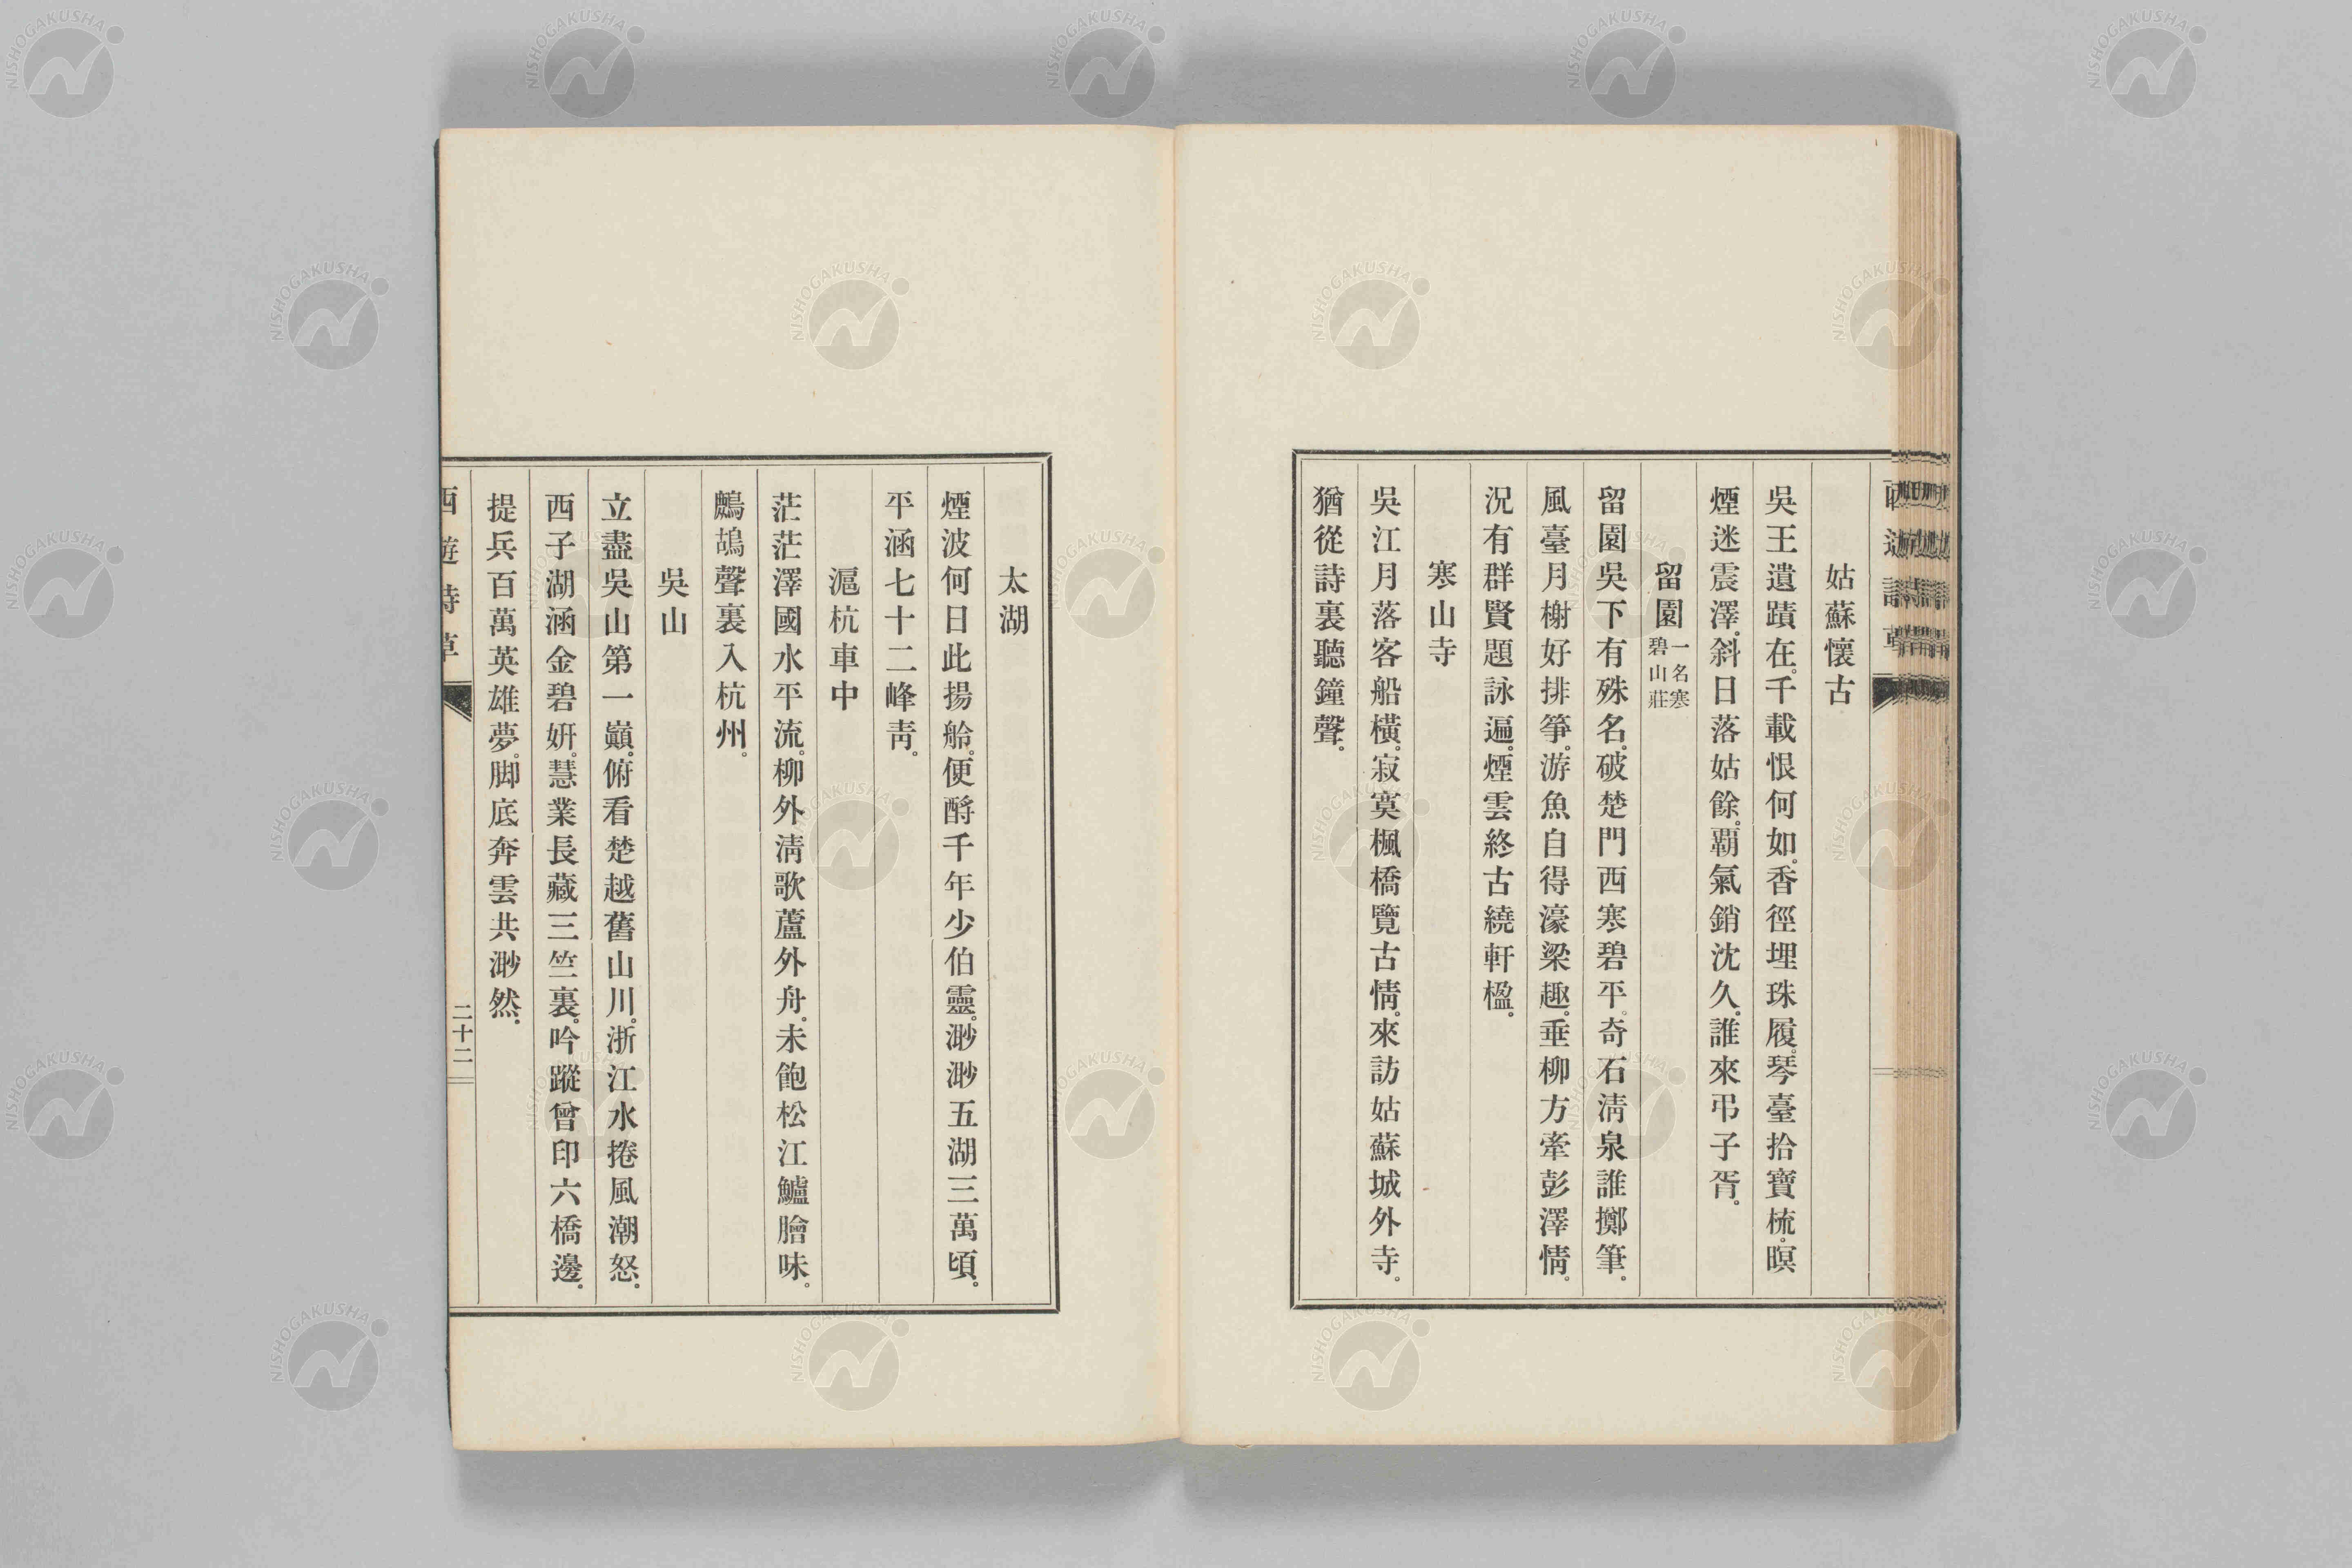 姑蘇懷古
吳王遺蹟在。千載恨何如。香徑埋珠履。琴臺拾寶梳。暝
煙迷震澤。斜日落姑餘。覇氣銷沈久。誰來弔子胥。
留園一名寒碧山莊
留園吳下有殊名。破楚門西寒碧平。奇石淸泉誰擲筆。
風臺月榭好排箏。游魚自得濠梁趣。垂柳方牽彭澤情。
況有群賢題詠遍。煙雲終古繞軒楹。
寒山寺
吳江月落客船橫。寂寞楓橋覽古情。來訪姑蘇城外寺。
猶從詩裏聽鐘聲。
太湖
煙波何日此揚舲。便酹千年少伯靈。渺渺五湖三萬頃。
平涵七十二峰靑。
滬杭車中
茫茫澤國水平流。柳外淸歌蘆外舟。未飽松江鱸膾味。
鷓鴣聲裏入杭州。
吳山
立盡吳山第一巓。俯看楚越舊山川。浙江水捲風潮怒。
西子湖涵金碧姸。慧業長藏三竺裏。吟蹤曾印六橋邊。
提兵百萬英雄夢。脚底奔雲共渺然。
西遊詩草
二十二
NISHOGAKUSHA